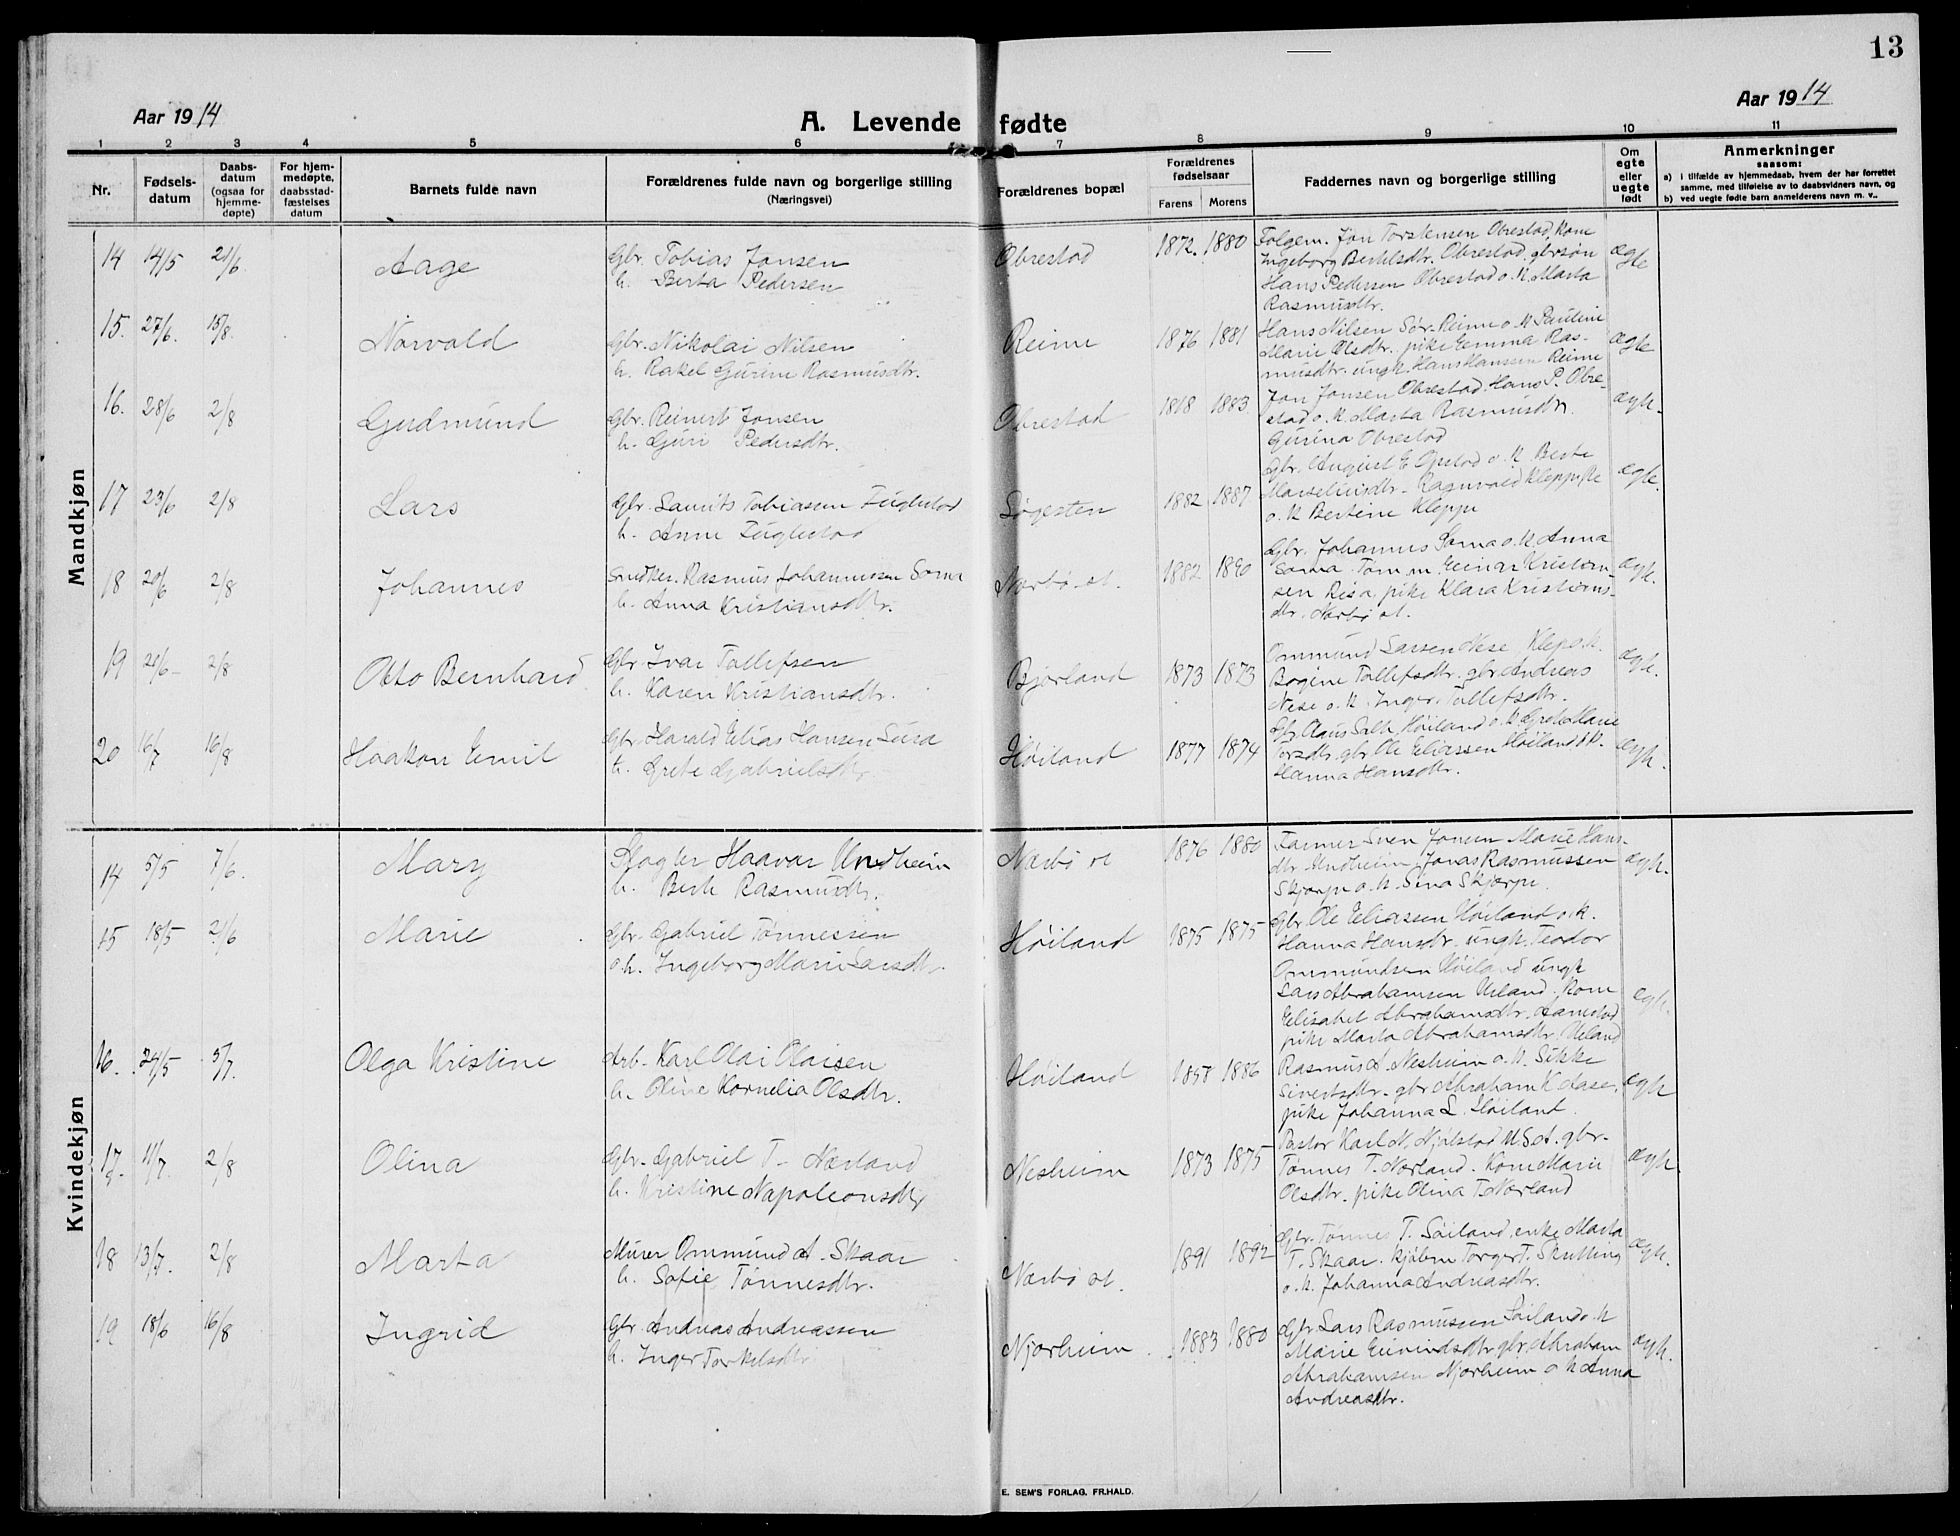 13
Aar 1914
A. Levende fødte
Aar 1914
1 2 3 4 5 6 7 8 9 10 11
Nr.
Fødsels-
datum
Daabs-
datum
(ogsaa for
hjemme-
døpte)
For hjem-
medøpte,
daabsstad-
fæstelses
datum
Barnets fulde navn
Forældrenes fulde navn og borgerlige stilling
(Næringsvei)
Forældrenes bopæl
Forældrenes
fødselsaar
Farens Morens
Faddernes navn og borgerlige stilling
Om
egte
eller
uegte
født
Anmerkninger
saasom:
a) i tilfælde av hjemmedaab, hvem der har forrettet
samme, med tilføielse av to daabsvidners navn, og
b) ved uegte fødte barn anmelderens navn m. v..
Mandkjøn
14 14/5 21/6. Aage
Gbr. Tobias Jonsen
h. Berta Pedersen
Obrestad 1872. 1880
Folgem. Jon Torstensen Obrestad, kone
Ingeborg Bertelsdtr. Obrestad, gbrsøn
Hans Pedersen Obrestad o. k. Marta
Rasmusdtr.
ægte
15. 27/6. 15/8. Norvald
Gbr. Nikolai Nilsen
h. Rakel Gurine Rasmusdtr.
Reime 1876 1881
Hans Nilsen Sør-Reime o. k. Pauline
Marie Olsdtr. pike Emma Ras-
musdtr. ungk. Hans Hansen Reime
ægte
16. 28/6 2/8 Gudmund
Gbr. Reinert Jonsen
h. Guri Pedersdtr.
Obrestad 1883
Jon Jonsen Obrestad. Hans P. Obre-
stad o. k. Marta Rasmusdtr.
Gurina Obrestad
ægte.
17 23/6 2/8 Lars
Gbr. Laurits Tobiassen Fuglestad
h. Anne Fuglestad
Søgesten 1882 1887
Gbr. August E Opstad o. k. Berte
Marseliusdtr. Ragnvald Kleppe
o. k. Bertine Kleppe
ægte.
18 20/6 2/8 Johannes
Snedker. Rasmus Johannessen Soma
h. Anna Kristiansdtr.
Nærbø st. 1882 1890
Gbr. Johannes Soma o. k. Anna
Soma. Tøm.m. Einar Kristian-
sen Risa, pike Klara Kristians-
dtr. Nærbø st.
ægte.
19 20/6- 2/8 Otto Bernhard
Gbr. Ivar Tollefsen
h. Karen Kristiansdtr.
Bjorland 1873 1873
Ommund Larsen Nese, Klep o. k.
Bogine Tollefsdtr. gbr. Andreas
Nese o. k. Inger Tollefsdtr.
ægte.
20 16/7 16/8 Haakon Emil
Gbr. Harald Elias Hansen
h. Grete Gabrielsdtr
Høiland 1877 1874
Gbr. Claus Salte Høiland o. k. Grete Marie
gbr. Ole Eliassen Høiland o. k.
Hanna Hansdtr.
ægte.
Kvindekjøn
14 5/5 7/6. Mary
Slagter Haavar Undheim
h. Berte Rasmusdtr.
Nærbø st 1876 1880
Farmer Sven Jonsen Marie Hans-
dtr. Undheim, Jonas Rasmussen
Skjærpe o. k. Sina Skjærpe.
ægte.
15 18/5 21/6 Marie
Gbr. Gabriel Tønnessen
o. h. Ingeborg Marie Larsdtr.
Høiland 1875 1875
Gbr. Ole Eliassen Høiland o. k.
Hanna Hansdtr. ungk. Teodor
Ommundsen Høiland ungk
Lars Abrahamsen Ueland. kone
Elisabet Abrahamsdtr. Aanestad
pike Marta Abrahamsdtr. Ueland
ægte.
16. 24/5 5/7. Olga Kristine
Arb. Karl Olai Olaisen
h. Oline Kornelia Olsdtr.
Høiland 1886
Rasmus A. Nesheim o. k. Sikke
Sivertsdtr. gbr. Abraham K. Aase,
pike Johanna L. Høiland.
ægte
17 11/7. 2/8 Olina
Gbr. Gabriel T. Nærland
h. Kristine Napoleonsdtr
Nesheim 1873 1875
Pastor Karl N. Njølstad U.S.A. gbr.
Tønnes T. Nærland. Kone Marie
Olsdtr. pike Olina T. Nærland
ægte
18 13/7. 2/8 Marta
Murer Ommund A. Skaar
h. Sofie Tønnesdtr.
Nærbø st. 1891 1892
Gbr. Tønnes T. Søiland, enke Marta
T. Skaar. kjøbm. Torger T. Skretting
o. k. Johanna Andreasdtr.
ægte.
19 18/6 16/8 Ingrid
Gbr. Andreas Andreassen
h. Inger Torkelsdtr
Njærheim. 1883 1880
Gbr. Lars Rasmussen Søiland o. k
Marie Eivindsdtr. gbr. Abraham
Abrahamsen Njærheim o k Anna
Andreasdtr.
ægte.
E. SEM'S FORLAG, FR.HALD.